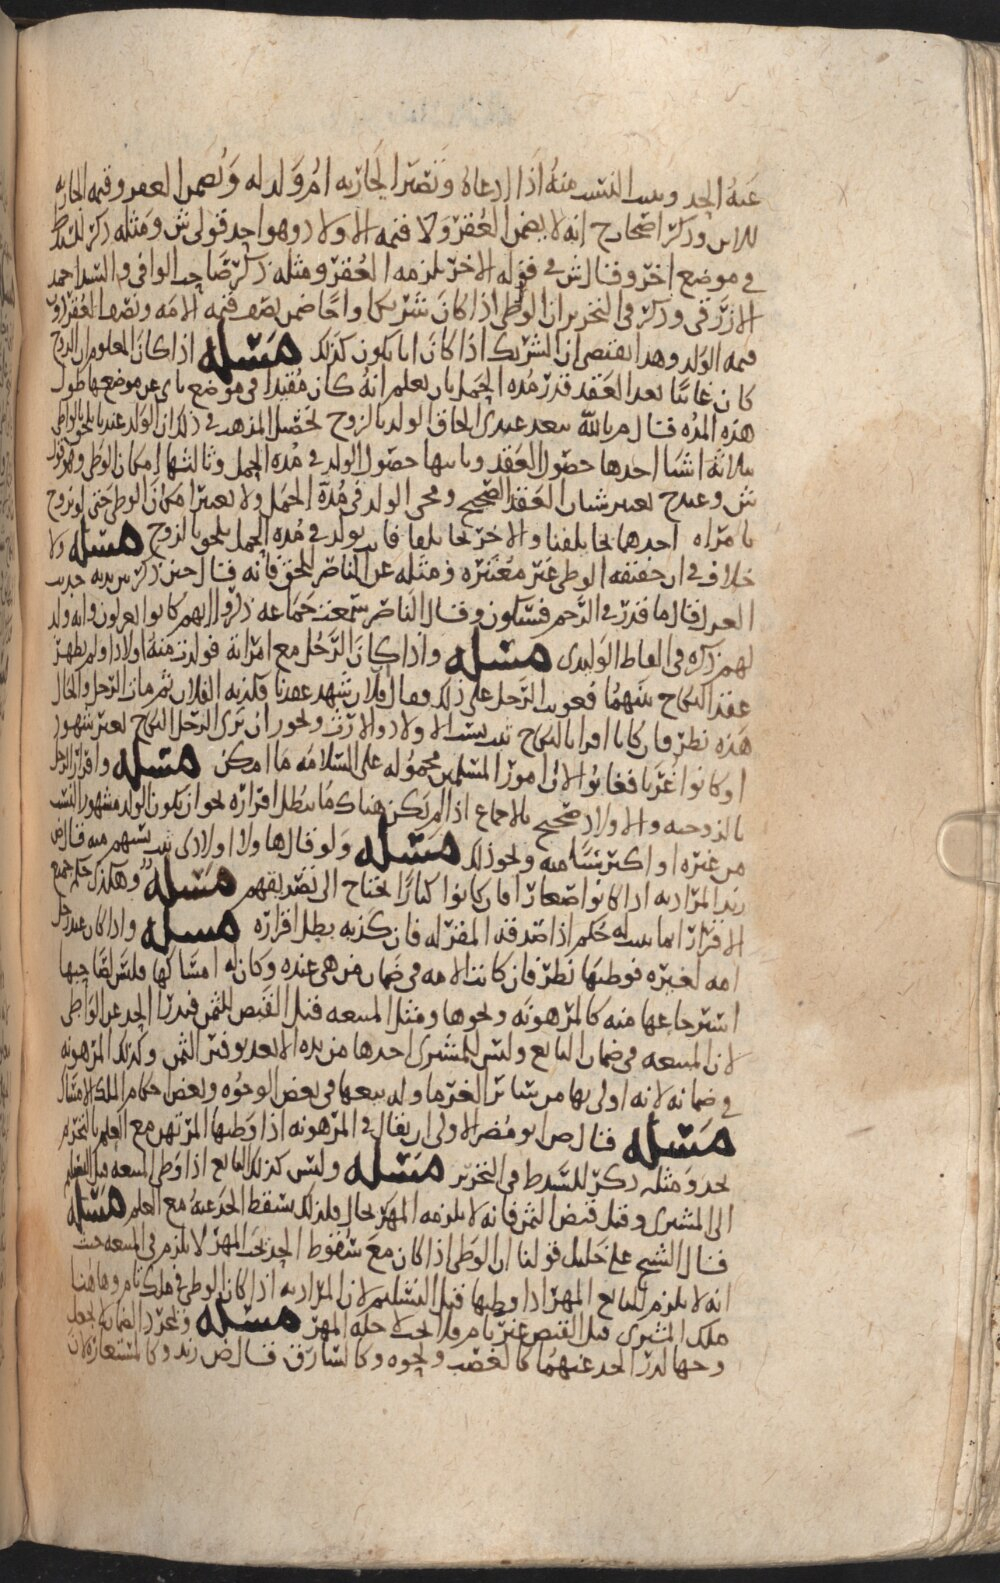 عنه الحد ويثبت النسب منه اذا ادعاه وتصير الجارية ام ولد له ويضمن العقر وقيمة الجارية
للابن وذكر اصحابنا ح انه لا يضمن العقر ولا قيمة الاولاد وهو احد قولي ش ومثله ذكر للسيد ط
في موضع اخر وقال ش في قوله الاخر يلزمه العقر ومثله ذكر صاحب الوافي والسيد احمد
الازرقي وذكر في التحرير ان الوطي اذا كان شريكا واخا ضمن نصف قيمة الامة ونصف العقر
قيمة الولد وهذا يقتضي ان الشريك اذا كان ابا يكون كذلك مسله اذا كان المعلوم ان الزوج
كان غائبا بعد العقد قدر مدة الحمل بان يعلم انه كان مقيدا في موضع ناي عن موضعها طول
هذه المدة قال م بالله يبعد عندي الحاق الولد بالزوج تحصيل المذهب في ذلك ان الولد عندنا يلحق بالواطي
بثلاثة اشيا احدها حصول العقد وثانيها حصول الولد في مدة الحمل وثالثها امكان الوطي وهو قول
ش وعند ح يعتبر شيان العقد الصحيح ومجي الولد في مدة الحمل ولا يعتبر امكان الوطي حتى لو تزوج
بامراه احدهما بحا يلقنا والاخر بحا يلقا فان بولد في مدة الحمل يلحق بالزوج مسله ولا
خلاف في ان حقيقة الوطي غير معتبرة ومثله عن الناصر للحق فانه قال حين ذكر حديث
العزل فقال ما قدر في الرحم فسيكون وقال الناصر سمعت جماعة ذكروا انهم كانوا يعزلون وانه ولد
لهم ذكره في الفاظ الوليدي مسله واذا كان الرجل مع امراة فولدت منه اولادا ولم يظهر
عقد النكاح بينهما فعوتب الرجل على ذلك فقال فلان شهد عقدنا فكذبه الفلان ثم مات الرجل والحال
هذه نظر فان كانا اقرا بالنكاح ثبت نسب الاولاد والارث ويجوز ان ترى الرجل النكاح بغير شهود
او كانوا غربا فغابوا لان امور المسلمين محمولة على السلامة ما امكن مسله واقرار الرجل
بالزوجية والاولاد صحيح بالاجماع اذا لم يكن هناك ما يبطل اقراره نحو ان يكون الولد مشهور النسب
من غيره او اكبر سنا منه ونحو ذلك مسله ولو قال هاولا اولادي ثبت نسبهم منه قال ض
زيد المراد به اذا كانوا صغارا فان كانوا كبارا يحتاج الى تصديقهم مسله وهكذا حكم جميع
الاقرار انما يثبت له حكم اذا صدقه المقر له فان كذبه بطل اقراره مسله واذا كان عند رجل
امة لغيره فوطيها نظر فان كانت الامة في ضمان من هي عنده وكان له امساكها فليس لصاحبها
استرجاعها منه كالمرهونة ونحوها ومثل المبيعة قبل القبض للثمن فيدرا الحد عن الواطي
لان المبيعة في ضمان البايع وليس للمشتري اخذها من يده الا بعد توفير الثمن وكذلك المرهونة
في ضمانه لانه اولى بها من سائر الغرما وله بيعها في بعض الوجوه وبعض احكام الملك الامساك
مسله قال ص ابو مضر الاولى ان يقال في المرهونة اذا وطيها المرتهن مع العلم بالتحريم
يحد ومثله ذكر للسيد ط في التحرير مسله وليس كذلك البايع اذا وطي المبيعة قبل التسليم
الى المشتري وقبل قبض الثمن فانه لا يلزمه المهر بحال ولذلك يسقط الحد عنه مع العلم مسله
قال الشيخ علي خليل قولنا ان الوطي اذا كان مع سقوط الحد يجب المهر لا يلزم في المبيعة حيث
انه لا يلزم البايع المهر اذا وطيها قبل التسليم لان المراد به اذا كان الوطي في ملك تام وهاهنا
ملك المشتري قبل القبض غير تام فلا يجب لاجله المهر مسله ومجرد الضمان لا يجعل
وجها لدرا الحد عنهما كالغصب ونحوه وكالسارق قال ض زيد وكالمستعارة لان